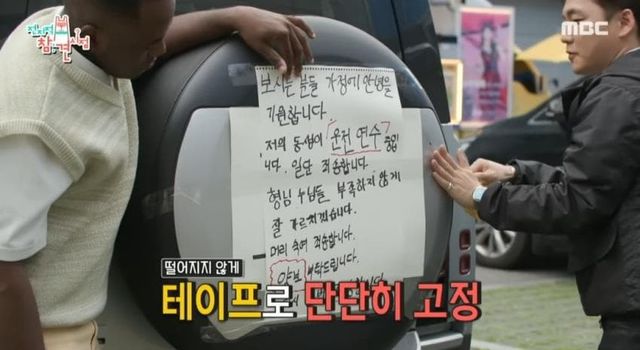 전지적
참견시점
MBC
보시는 분들 가정에 안녕을
기원합니다
저의 동생이 운전 연수 중입
니다. 일단 죄송합니다.
형님 누님들 부족하지 않게
잘 가르치겠습니다.
머리 숙여 죄송합니다.
양보 부탁드립니다.
떨어지지 않게
테이프로 단단히 고정